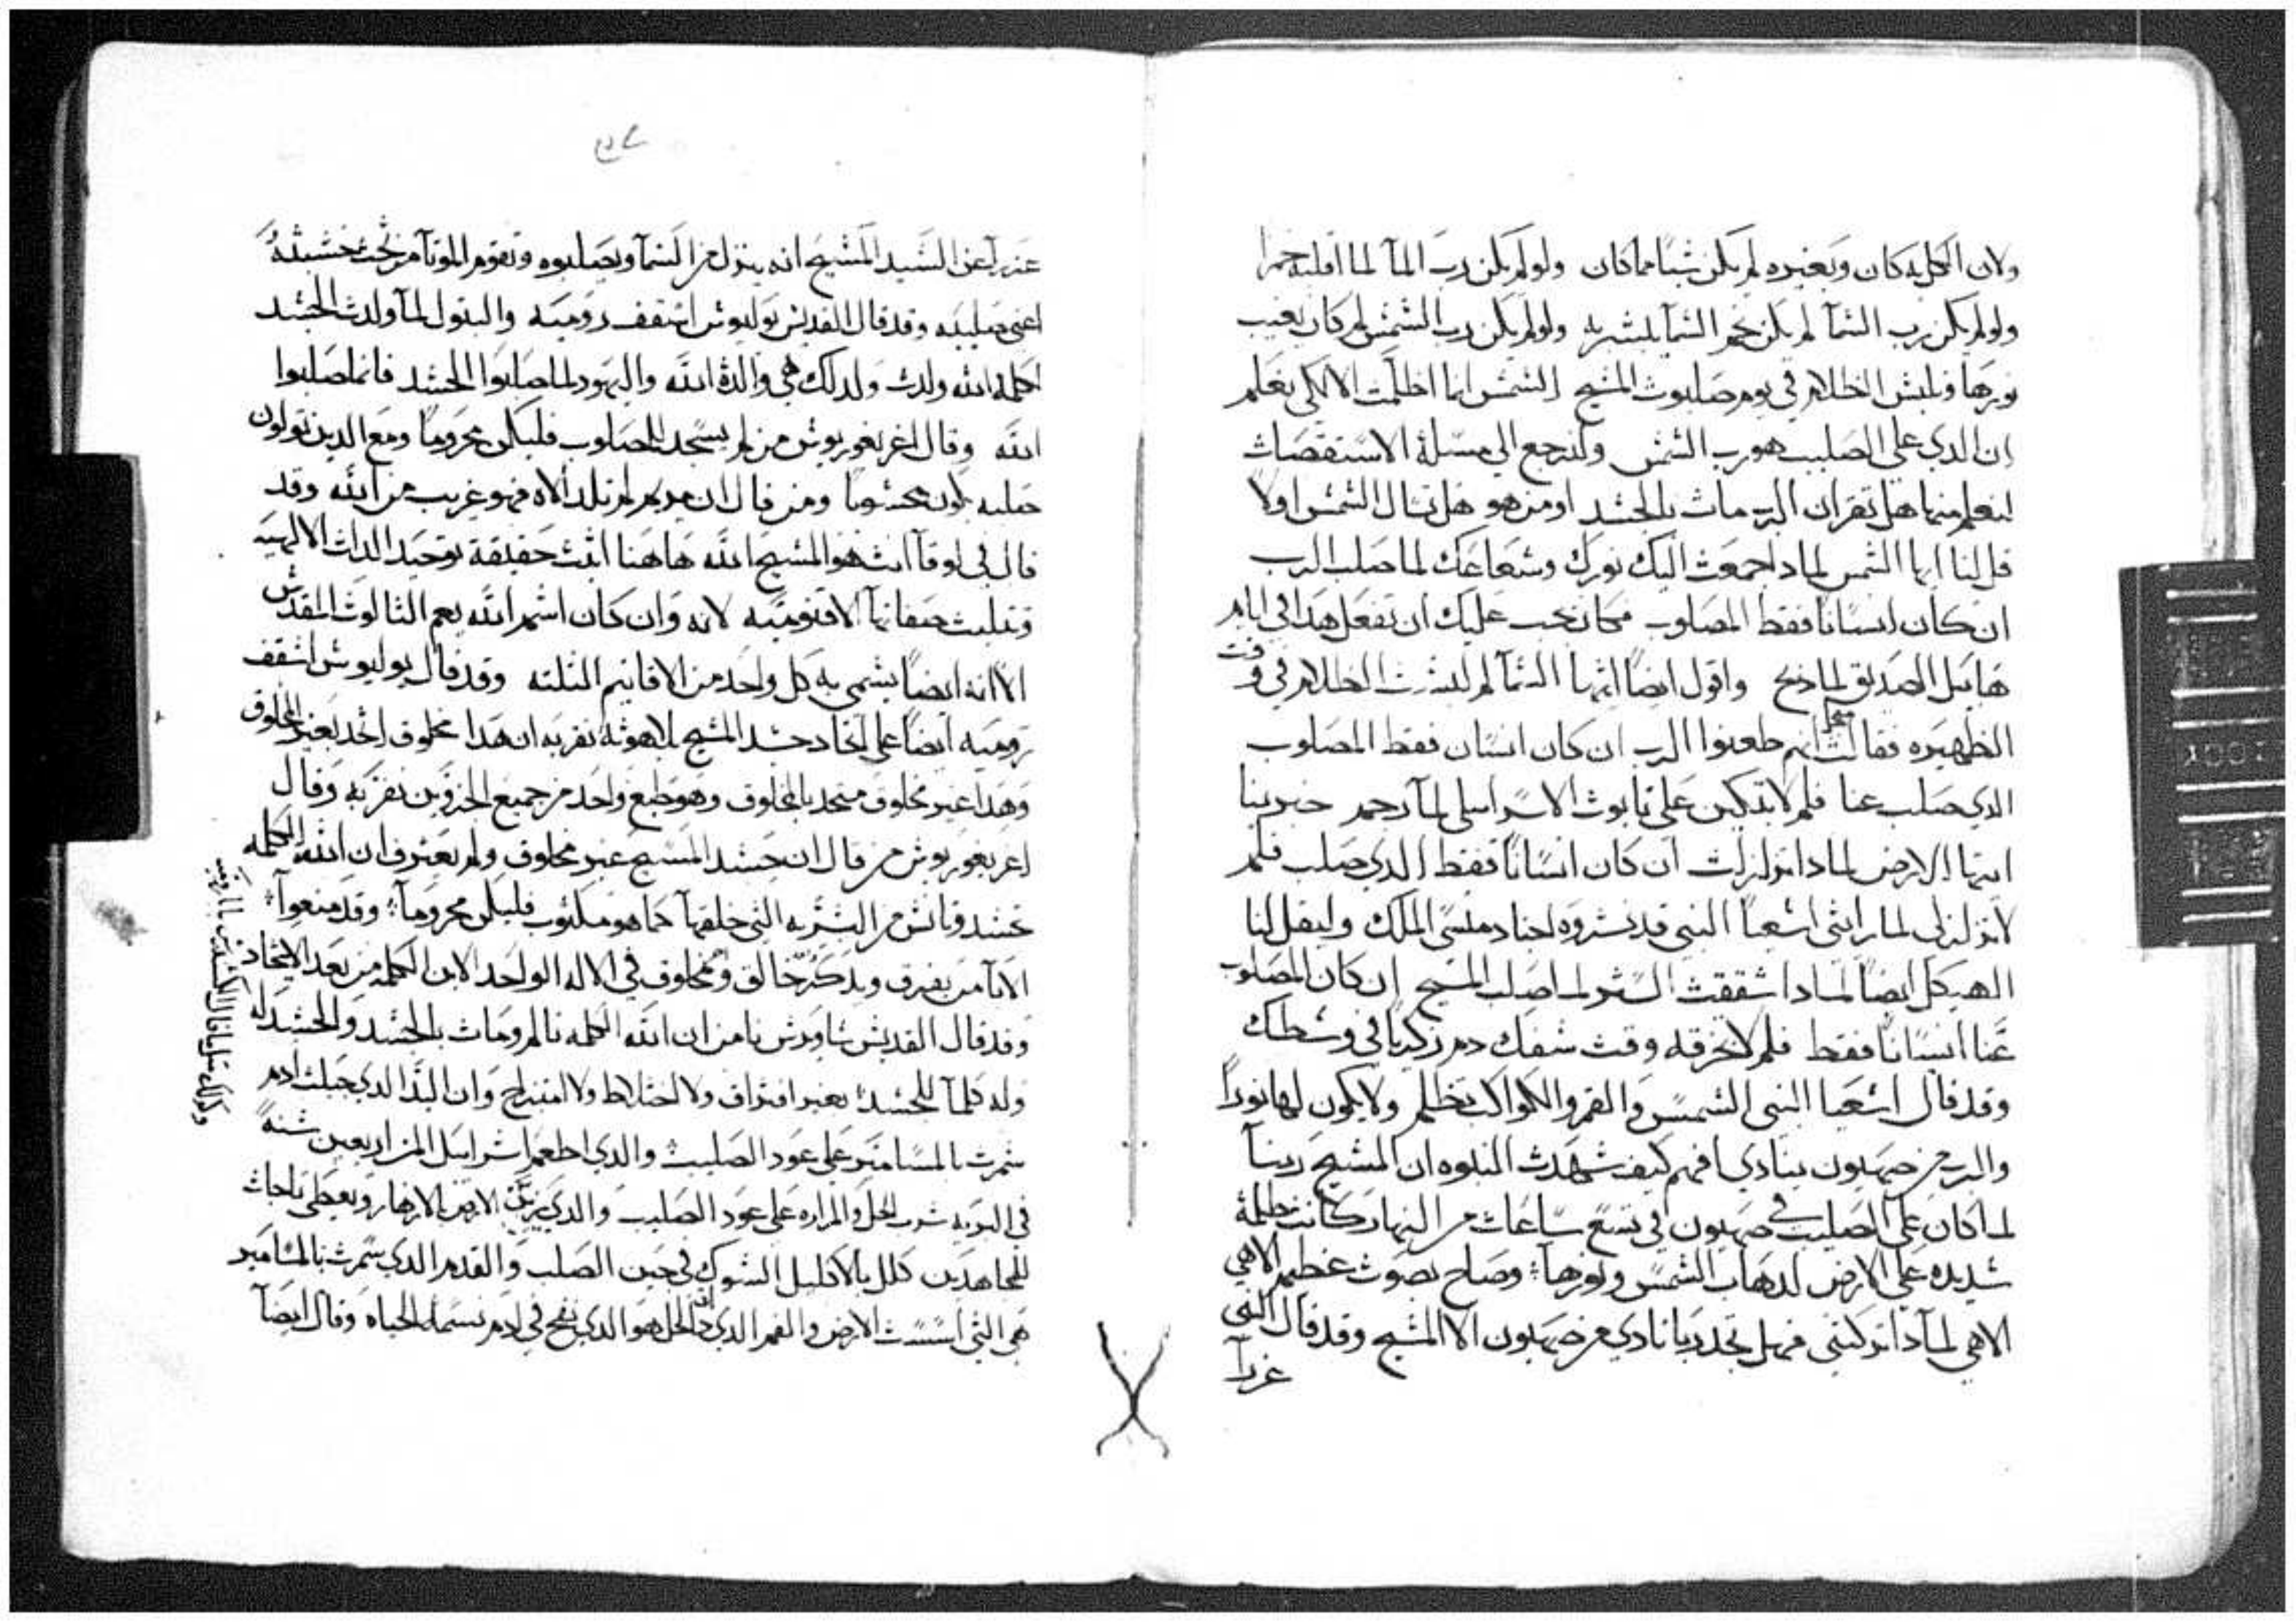 ولان الكل به كان وبغيره لم يكن شيًا مما كان ولو لم يكن رب المآ لما اقلبه خمرا
ولو لم يكن رب السَمآ لم يكن نجم السَمآ يبشر به ولو لم يكن رب الشمسَ لم كان يغيب
نورها ويلبسَ الظلام في يوم صلبوت المسَيح الشمسَ انما اظلمت الا لكي يعلم
ان الدي على الصليب هو رب الشمسَ ولنرجع الي مسَلة الاسَتقصات
لنعلم منها هل تقر ان الرب مات بالجسَد او من هو هل نسَال الشمسَ اولًا
قل لنا ايها الشمس لمادا جمعت اليك نورك وشعاعك لما صلب الرب
ان كان انسَانًا فقط المصلوب فكان يجب عليك ان تفعل هدا في ايام
هابيل الصديق لما دبح واقول ايضًا ايتها السَمآ لم لبسَت الظلام في وقت
الظهيره فقالت انهم طعنوا الرب ان كان انسَان فقط المصلوب
الدي صلب عنا فلم لا تبكين على نابوت الاسَراييلي لمآ رجم خبرينا
ايتها الارض لمادا تزلزلت ان كان انسَانًا فقط الدي صلب فلم
لا تزلزلي لما رايتي اشَعيا النبي قد نشروه اجناد منسَى الملك وليقل لنا
الهيكل ايضًا لمادا شققت السَتر لما صلب المسَيح ان كان المصلوب
عنا انسَانًا فقط فلم لا تخرقه وقت سَفك دم زكريا في وسَطك
وقد قال اشَعيا النبي الشمسَ والقمر والكواكب تظلم ولا يكون لها نورًا
والرب من صهيون ينادي افهم كيف شهدت النبوه ان المسَيح ربنآ
لما كان على الصليب في صهيون في تسَع سَاعات من النهار كانت ظلمة
شديده على الارض لدهاب الشمسَ ونورهآ وصاح بصوت عظيم الاهي
الاهي لمآدا تركتني فهل تجد ربا نادي من صهيون الا المسَيح وقد قال النبي
عزرآ
عزرآ عن السَيد المسَيح انه ينزل من السَمآ ويصلبوه وتقوم الموتآ من تحت خشبتهُ
اعني صليبه وقد قال القديسَ يوليوسَ اسَقف روميه والبتول لمآ ولدت الجسَد
الكلمه الله ولدت ولدلك هي والدة الله واليهود لما صلبوا الجسَد فانما صلبوا
الله وقال اغريغوريوسَ من لم يسَجد للمصلوب فليكن محرومًا ومع الدين تولون
صلبه يكون محسَوبًا ومن قال ان مريم لم تلد الاه فهو غريب من الله وقد
قال في لوقا انت هو المسَيح الله هاهنا اثبت حقيقة توحيد الدات الالهيه
وتثليت صفاتهآ الاقنوميه لانه وان كان اسَم الله يعم الثالوت المقدسَ
الا انه ايضًا يسَمى به كل واحد من الاقانيم التلته وقد قال يوليوسَ اسَقف
روميه ايضًا على اتحاد جسَد المسَيح بلاهوته نقر به ان هدا مخلوق اتحد بغير المخلوق
وهدا غير مخلوق متحد بالمخلوق وهو طبع واحد من جميع الجزوين نقر به وقال
اغريغوريوسَ من قال ان جسَد المسَيح غير مخلوق ولم يعترف ان الله الكلمه
تجسَد وتانسَ من البشَريه التي خلقهآ كما هو مكتوب فليكن محرومآ وقد منعوآ
الابآ من يفرق ويدكر خالق ومخلوق في الاله الواحد الابن الكلمه من بعد الاتحاد
وقد قال القديسَ سَاويرسَ نامن ان الله الكلمه تالم ومات بالجسَد والجسَد له
وله كلمآ للجسَد بغير افتراق ولا اختلاط ولا امتزاج وان اليد الدي جبلت ادم
سَمرت بالمسَامير على عود الصليب والدي اطعم اسَراييل المن اربعين سَنهً
في البريه شرب الخل والمراره على عود الصليب والدي يزين الارض بالازهار ويعطى تاجات
للمجاهدين كلل بالاكليل الشوك في حين الصلب والقدم الدي سَمرت بالمسَامير
هي التي اسَسَت الارض والفم الدي داق الخل هو الدي نفخ في ادم نسَمة الحياه وقال ايضآ